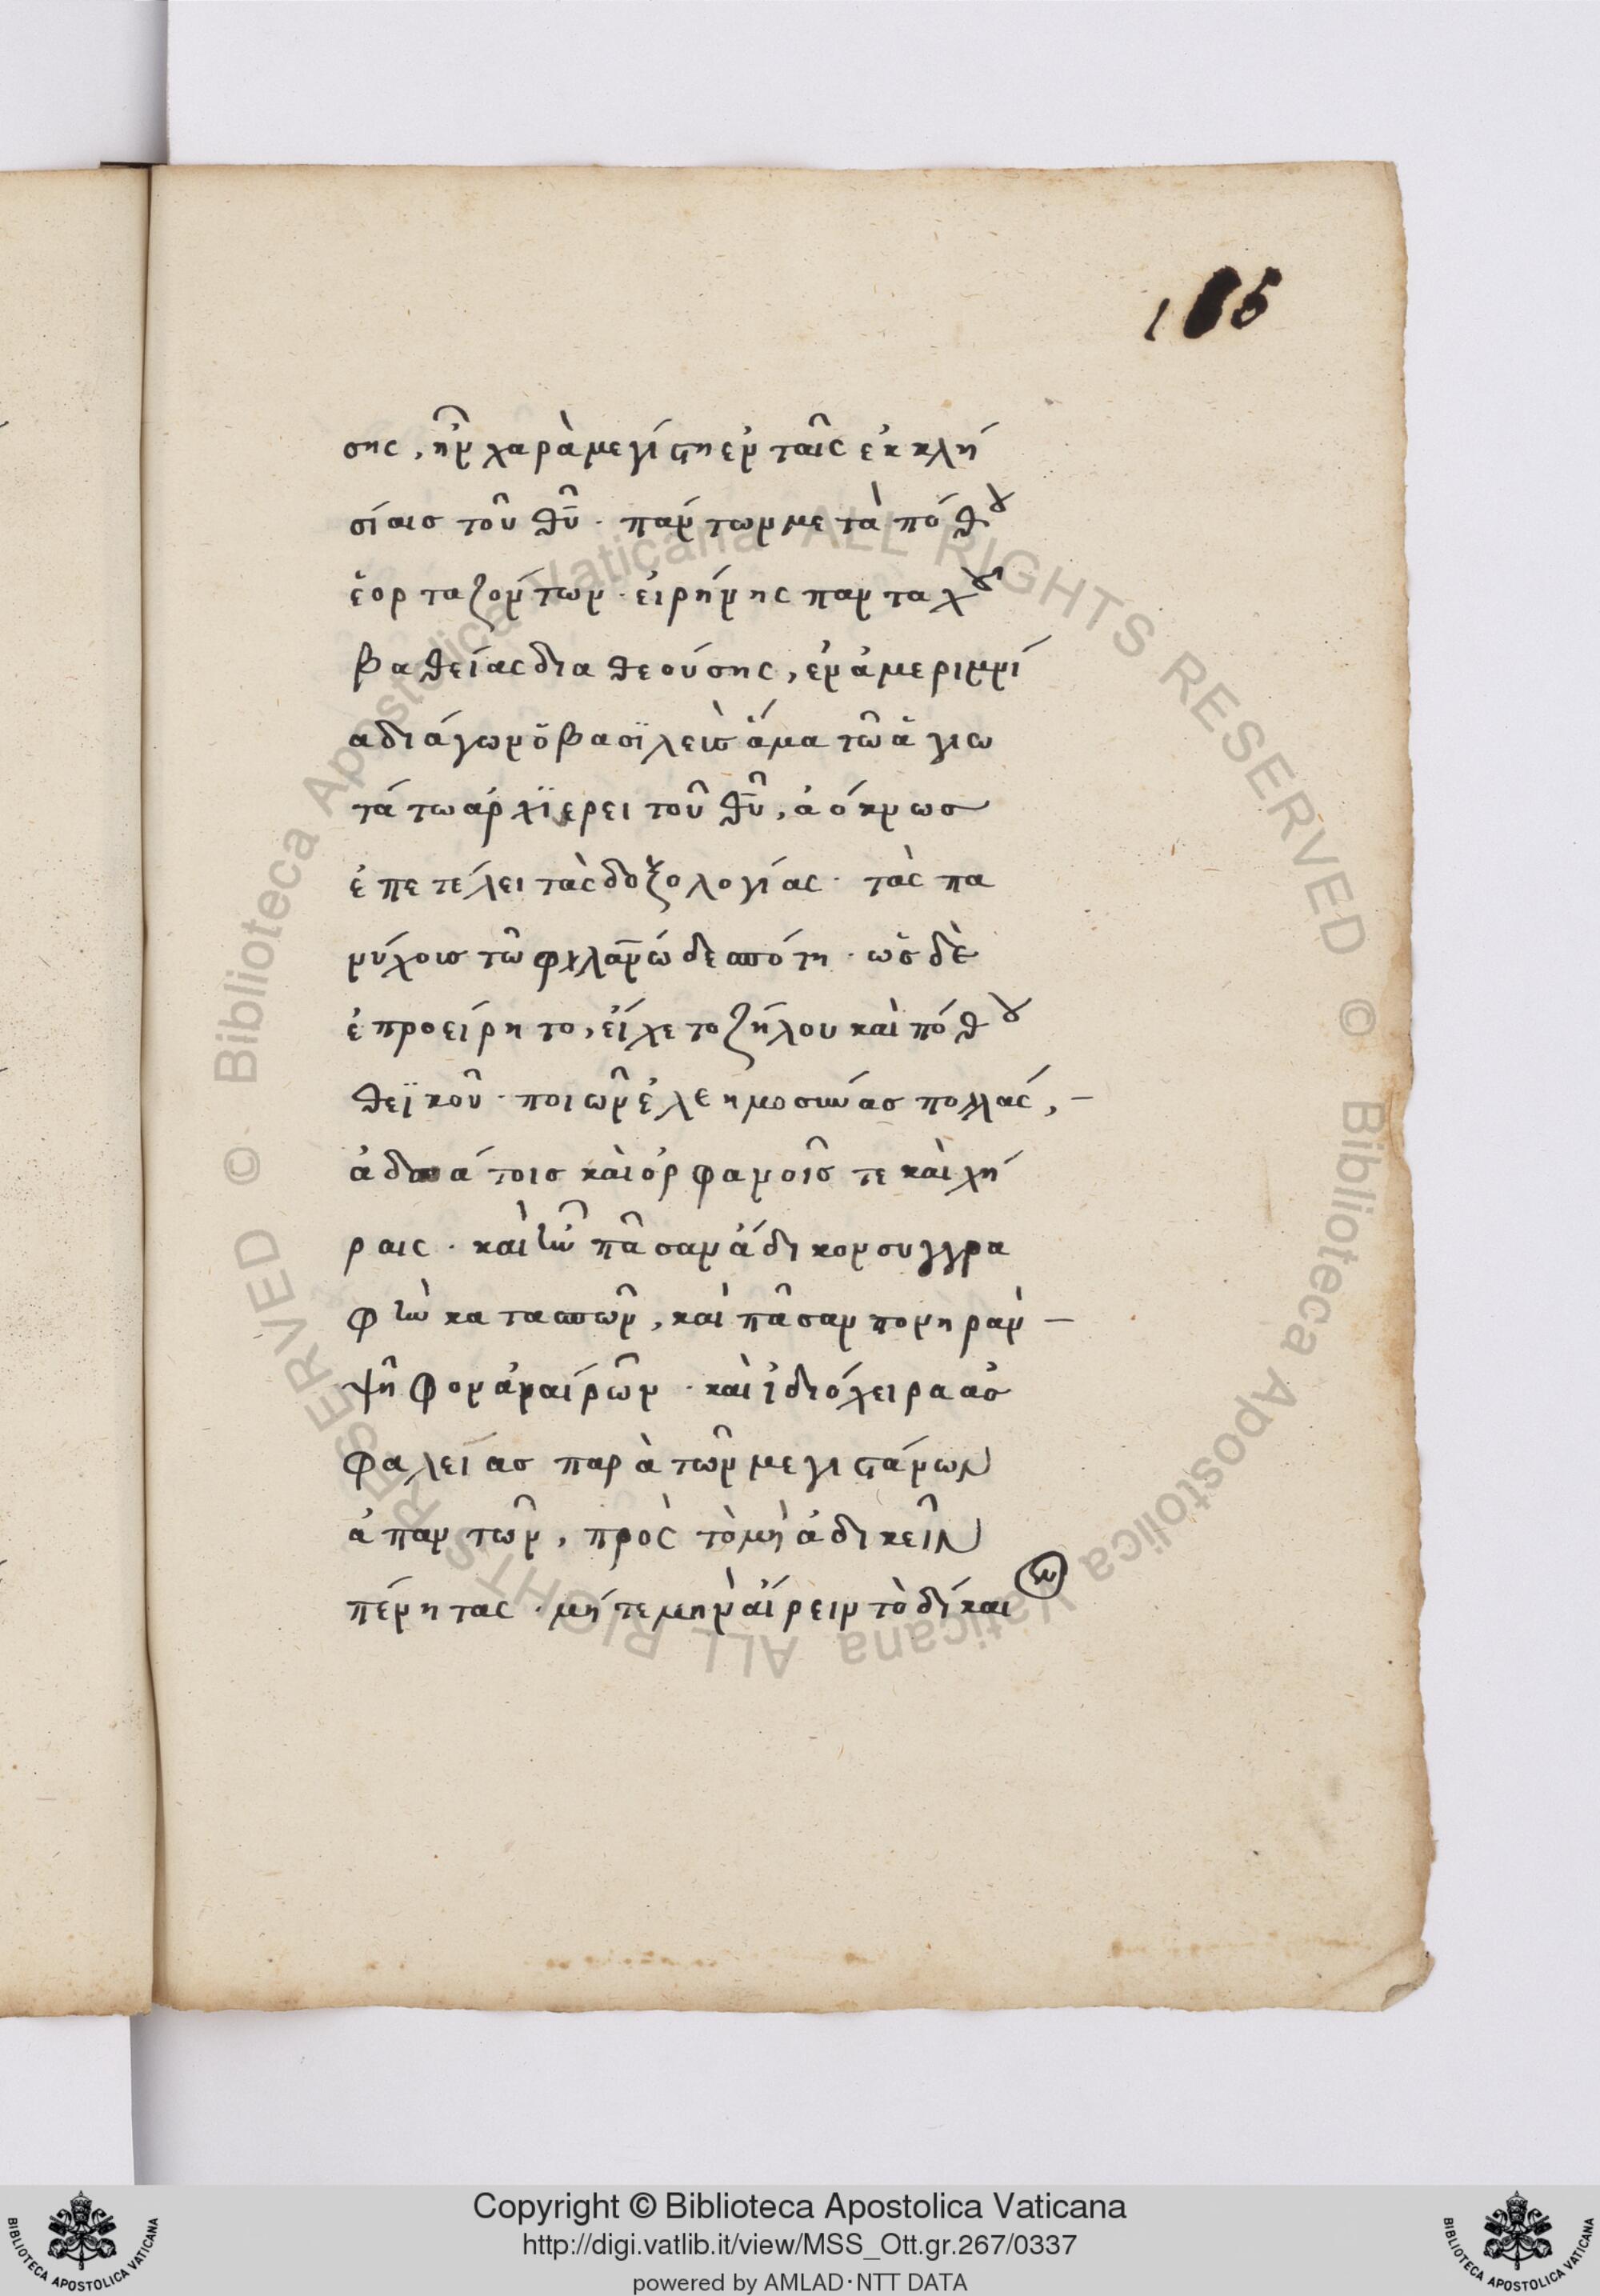 165
σης, ἦν χαρὰ μεγίστη ἐν ταῖς ἐκκλη
σίαις τοῦ θῦ. πάντων μετὰ πόθου
ἑορταζόντων. εἰρήνης πανταχοῦ
βαθείας διαθεούσης, ἐν ἀμεριμνί
α διάγων ὁ βασϊλεὺς ἅμα τῶ ἁγιω
τάτω ἀρχϊερει τοῦ θῦ, ἀόκνως
ἐπετέλει τὰς δοξολογίας. τὰς πα
νύχοις τῶ φιλανω δεσπότη. ὡς δὲ
ἐπροείρητο, εἴχετο ζήλου καὶ πόθου
θεϊκοῦ. ποιῶν ἐλεημοσύνας πολλάς,
ἀδυνάτοις καὶ ὀρφανοῖς τε καὶ χή
ραις. καὶ ἦν πᾶσαν ἄδικον συγγρα
φὴν κατασπῶν, καὶ πᾶσαν πονηρὰν
ψῆφον ἀναίρῶν. καὶ ἰδιόχειρα ἀσ
φαλείας παρὰ τῶν μεγιστάνων
ἀπαντῶν, πρὸς τὸ μὴ ἀδικεῖν
πένητας. μήτε μὴν αἴρειν τὸ δίκαιον
Copyright © Biblioteca Apostolica Vaticana
http://digi.vatlib.it/view/MSS_Ott.gr.267/0337
powered by AMLAD·NTT DATA
BIBLIOTECA APOSTOLICA VATICANA
BIBLIOTECA APOSTOLICA VATICANA
© Biblioteca Apostolica Vaticana ALL RIGHTS RESERVED
© Biblioteca Apostolica Vaticana ALL RIGHTS RESERVED